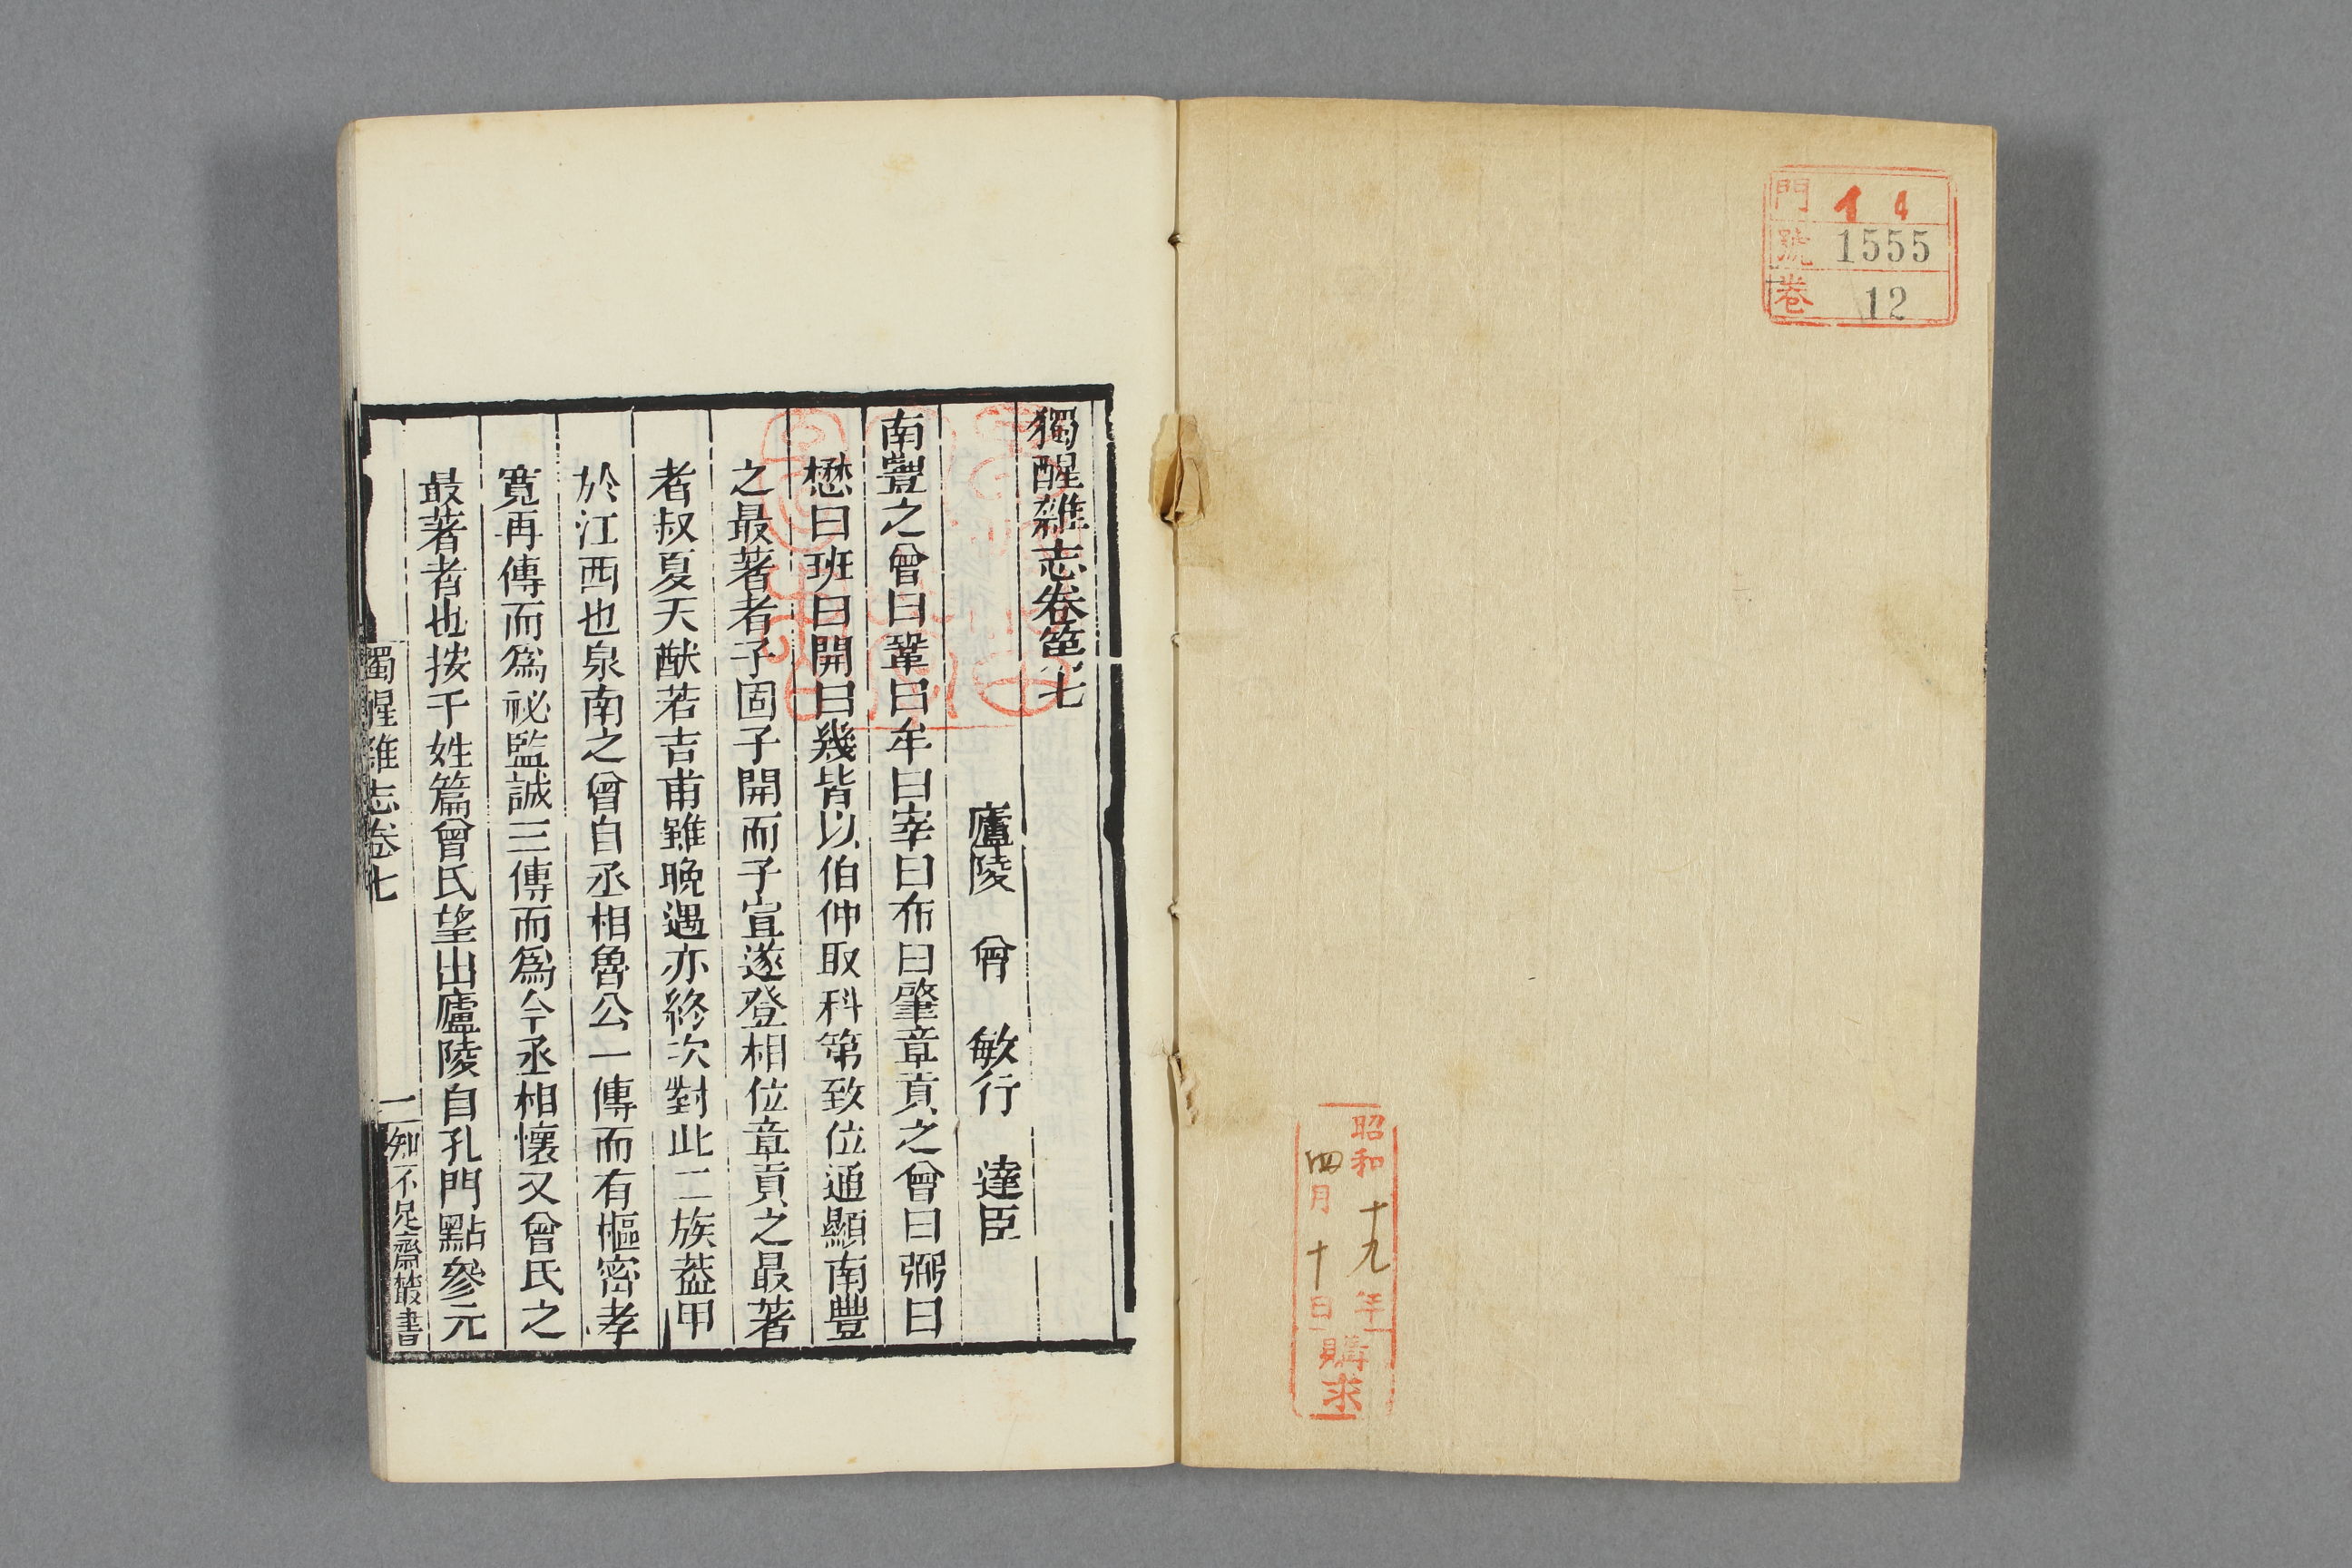 門 イ 4
號 1555
卷 12
昭和十九年
四月十日
購求
獨醒雜志卷第七
廬陵 曾 敏行 達臣
南豐之曾曰鞏曰牟曰宰曰布曰肇章貢之曾曰弼曰
懋曰班曰開曰幾皆以伯仲取科第致位通顯南豐
之最著者子固子開而子宣遂登相位章貢之最著
者叔夏天猷若吉甫雖晚遇亦終次對此二族葢甲
於江西也泉南之曾自丞相魯公一傳而有樞密孝
寬再傳而爲祕監誠三傳而爲今丞相懷又曾氏之
最著者也按千姓篇曾氏望出廬陵自孔門點參元
獨醒雜志卷七
一
知不足齋叢書